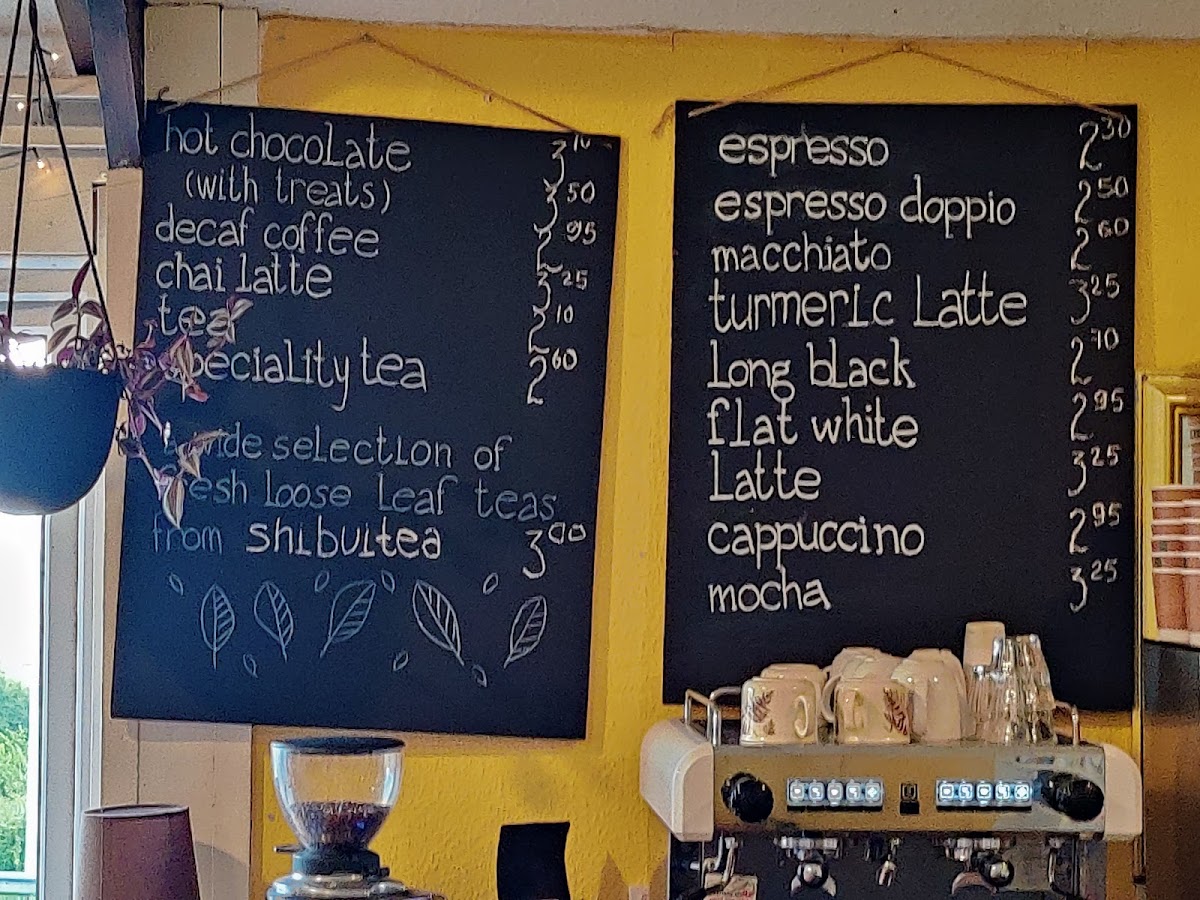 hot chocolate 3 10
(with treats) 3 50
decaf coffee 2 95
chai latte 3 25
tea 2 10
speciality tea 2 60
a wide selection of
fresh loose leaf teas
from shibuitea 3 00
espresso 2 30
espresso doppio 2 50
macchiato 2 60
turmeric latte 3 25
long black 2 70
flat white 2 95
latte 3 25
cappuccino 2 95
mocha 3 25